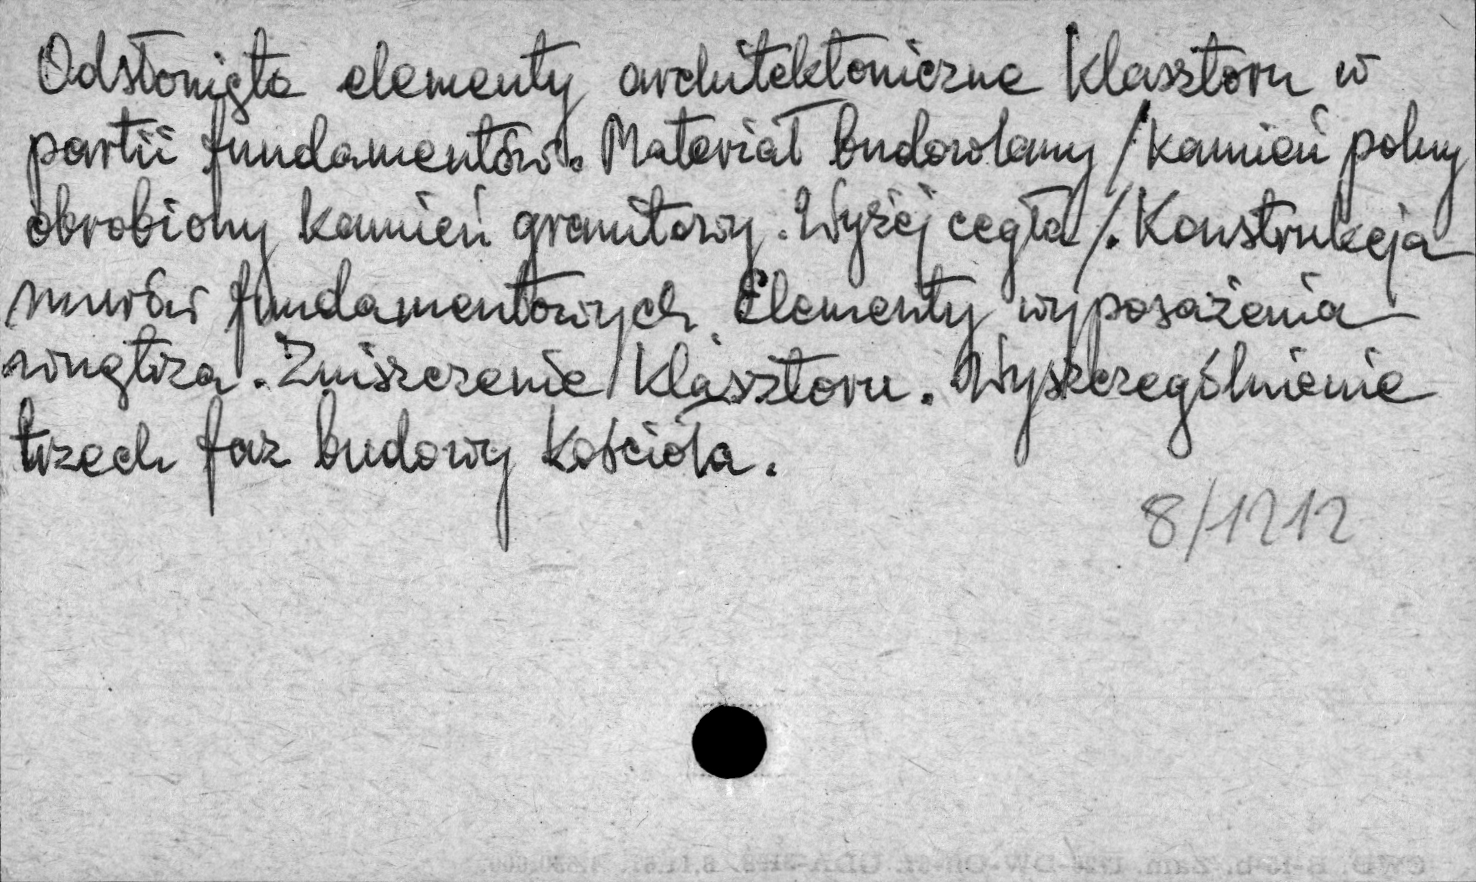 Odsłonięto elementy architektoniczne klasztoru w
partii fundamentów. Materiał budowlany /kamień polny
obrobiony kamień granitowy. Wyżej cegła/. Konstrukcja
murów fundamentowych. Elementy wyposażenia
wnętrza. Zniszczenie klasztoru. Wyszczególnienie
trzech faz budowy kościoła.
8/1212